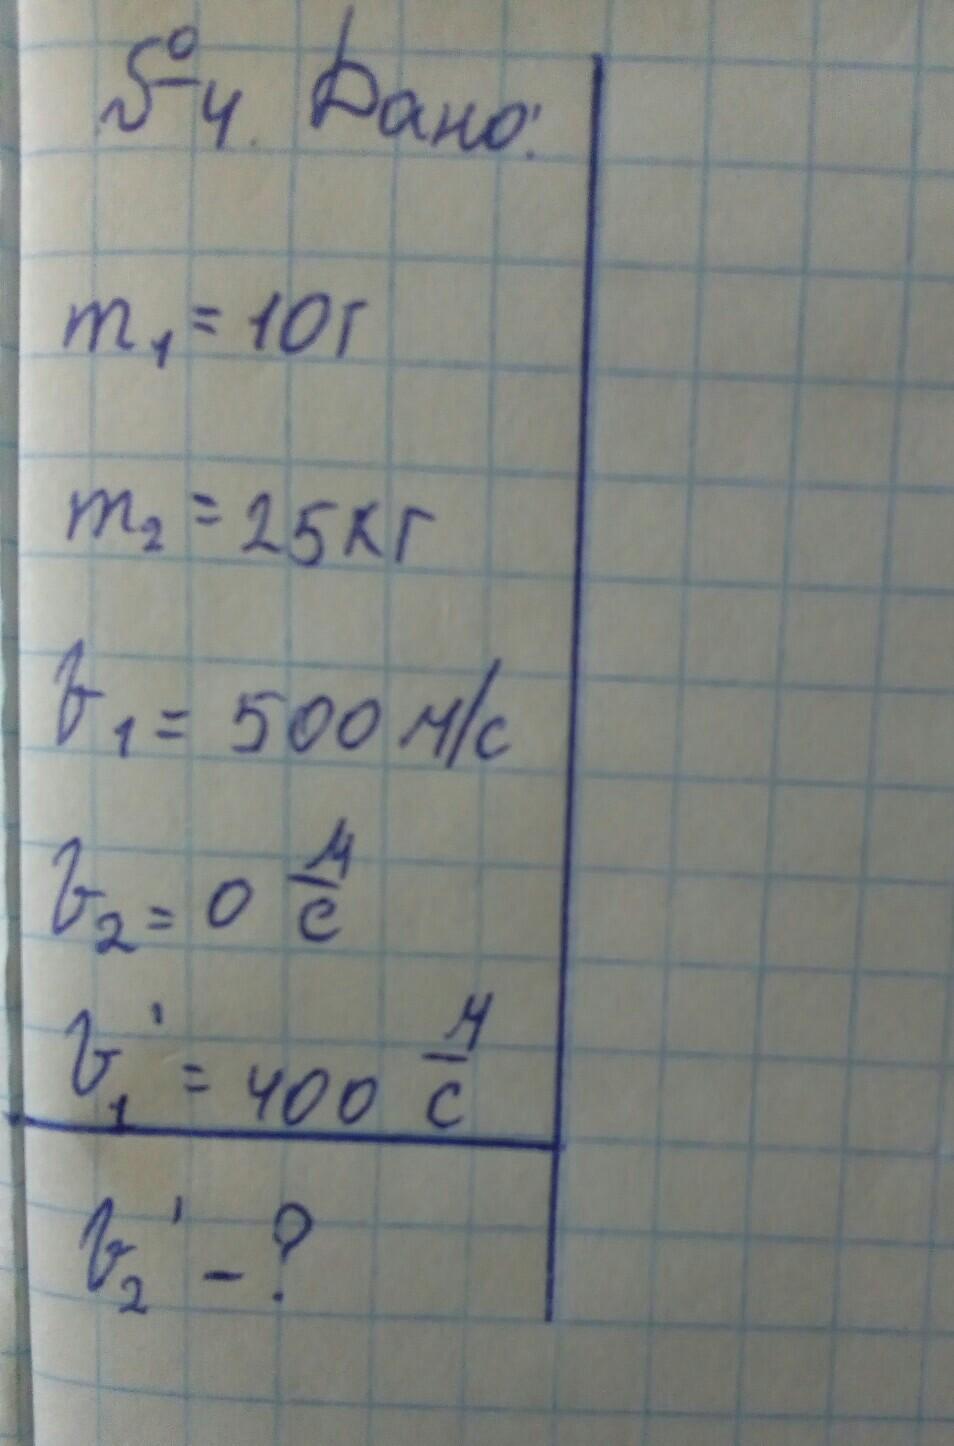 №4. Дано:
m₁ = 10г
m₂ = 25кг
v₁ = 500 м/с
v₂ = 0 м/с
v₁' = 400 м/с
v₂' - ?